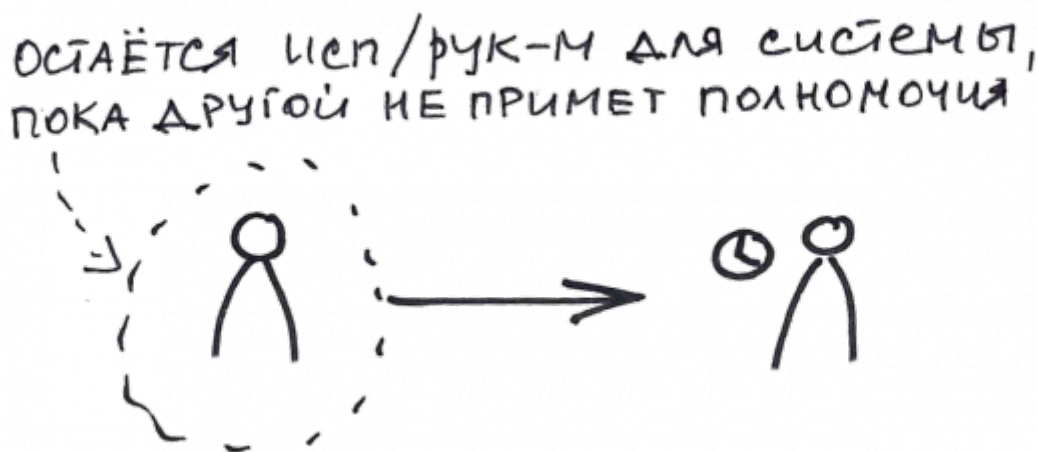 ОСТАЁТСЯ ИСП/РУК-М ДЛЯ СИСТЕМЫ,
ПОКА ДРУГОЙ НЕ ПРИМЕТ ПОЛНОМОЧИЯ